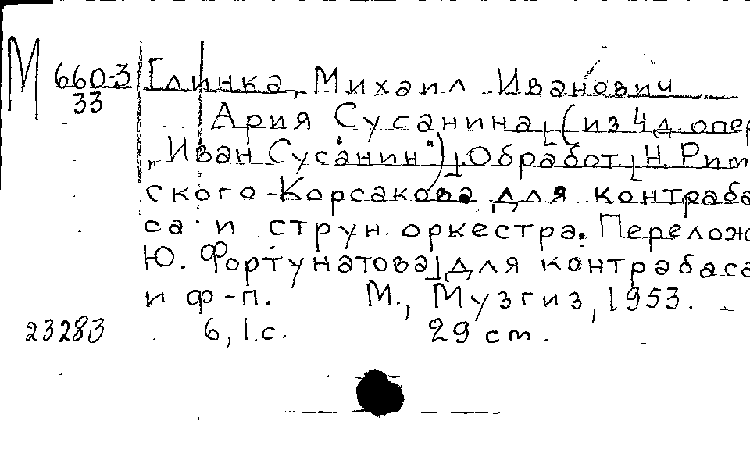 М 660-3 Глинка, Михаил Иванович
33 Ария Сусанина (из 4 д. опер
"Иван Сусанин") Обработ. Н. Рим
ского-Корсакова для контраба
са и струн. оркестра. Перелож
Ю. Фортунатова для контрабаса
и ф-п. М., Музгиз, 1953.
23283 6, 1 с. 29 cm.